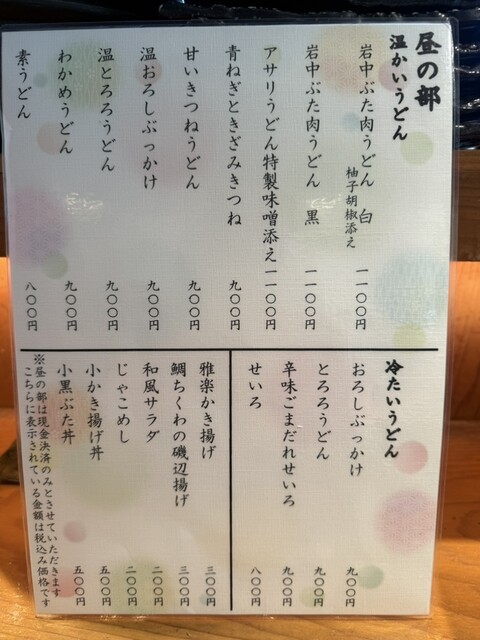 昼の部
温かいうどん
岩中ぶた肉うどん 白
柚子胡椒添え
一一〇〇円
岩中ぶた肉うどん 黒
一一〇〇円
アサリうどん特製味噌添え
一一〇〇円
青ねぎときざみきつね
九〇〇円
甘いきつねうどん
九〇〇円
温おろしぶっかけ
九〇〇円
温とろろうどん
九〇〇円
わかめうどん
九〇〇円
素うどん
八〇〇円
冷たいうどん
おろしぶっかけ
九〇〇円
とろろうどん
九〇〇円
辛味ごまだれせいろ
九〇〇円
せいろ
八〇〇円
雅楽かき揚げ
三〇〇円
鯛ちくわの磯辺揚げ
三〇〇円
和風サラダ
二〇〇円
じゃこめし
二〇〇円
小かき揚げ丼
五〇〇円
小黒ぶた丼
五〇〇円
※昼の部は現金決済のみとさせていただきます
こちらに表示されている金額は税込み価格です